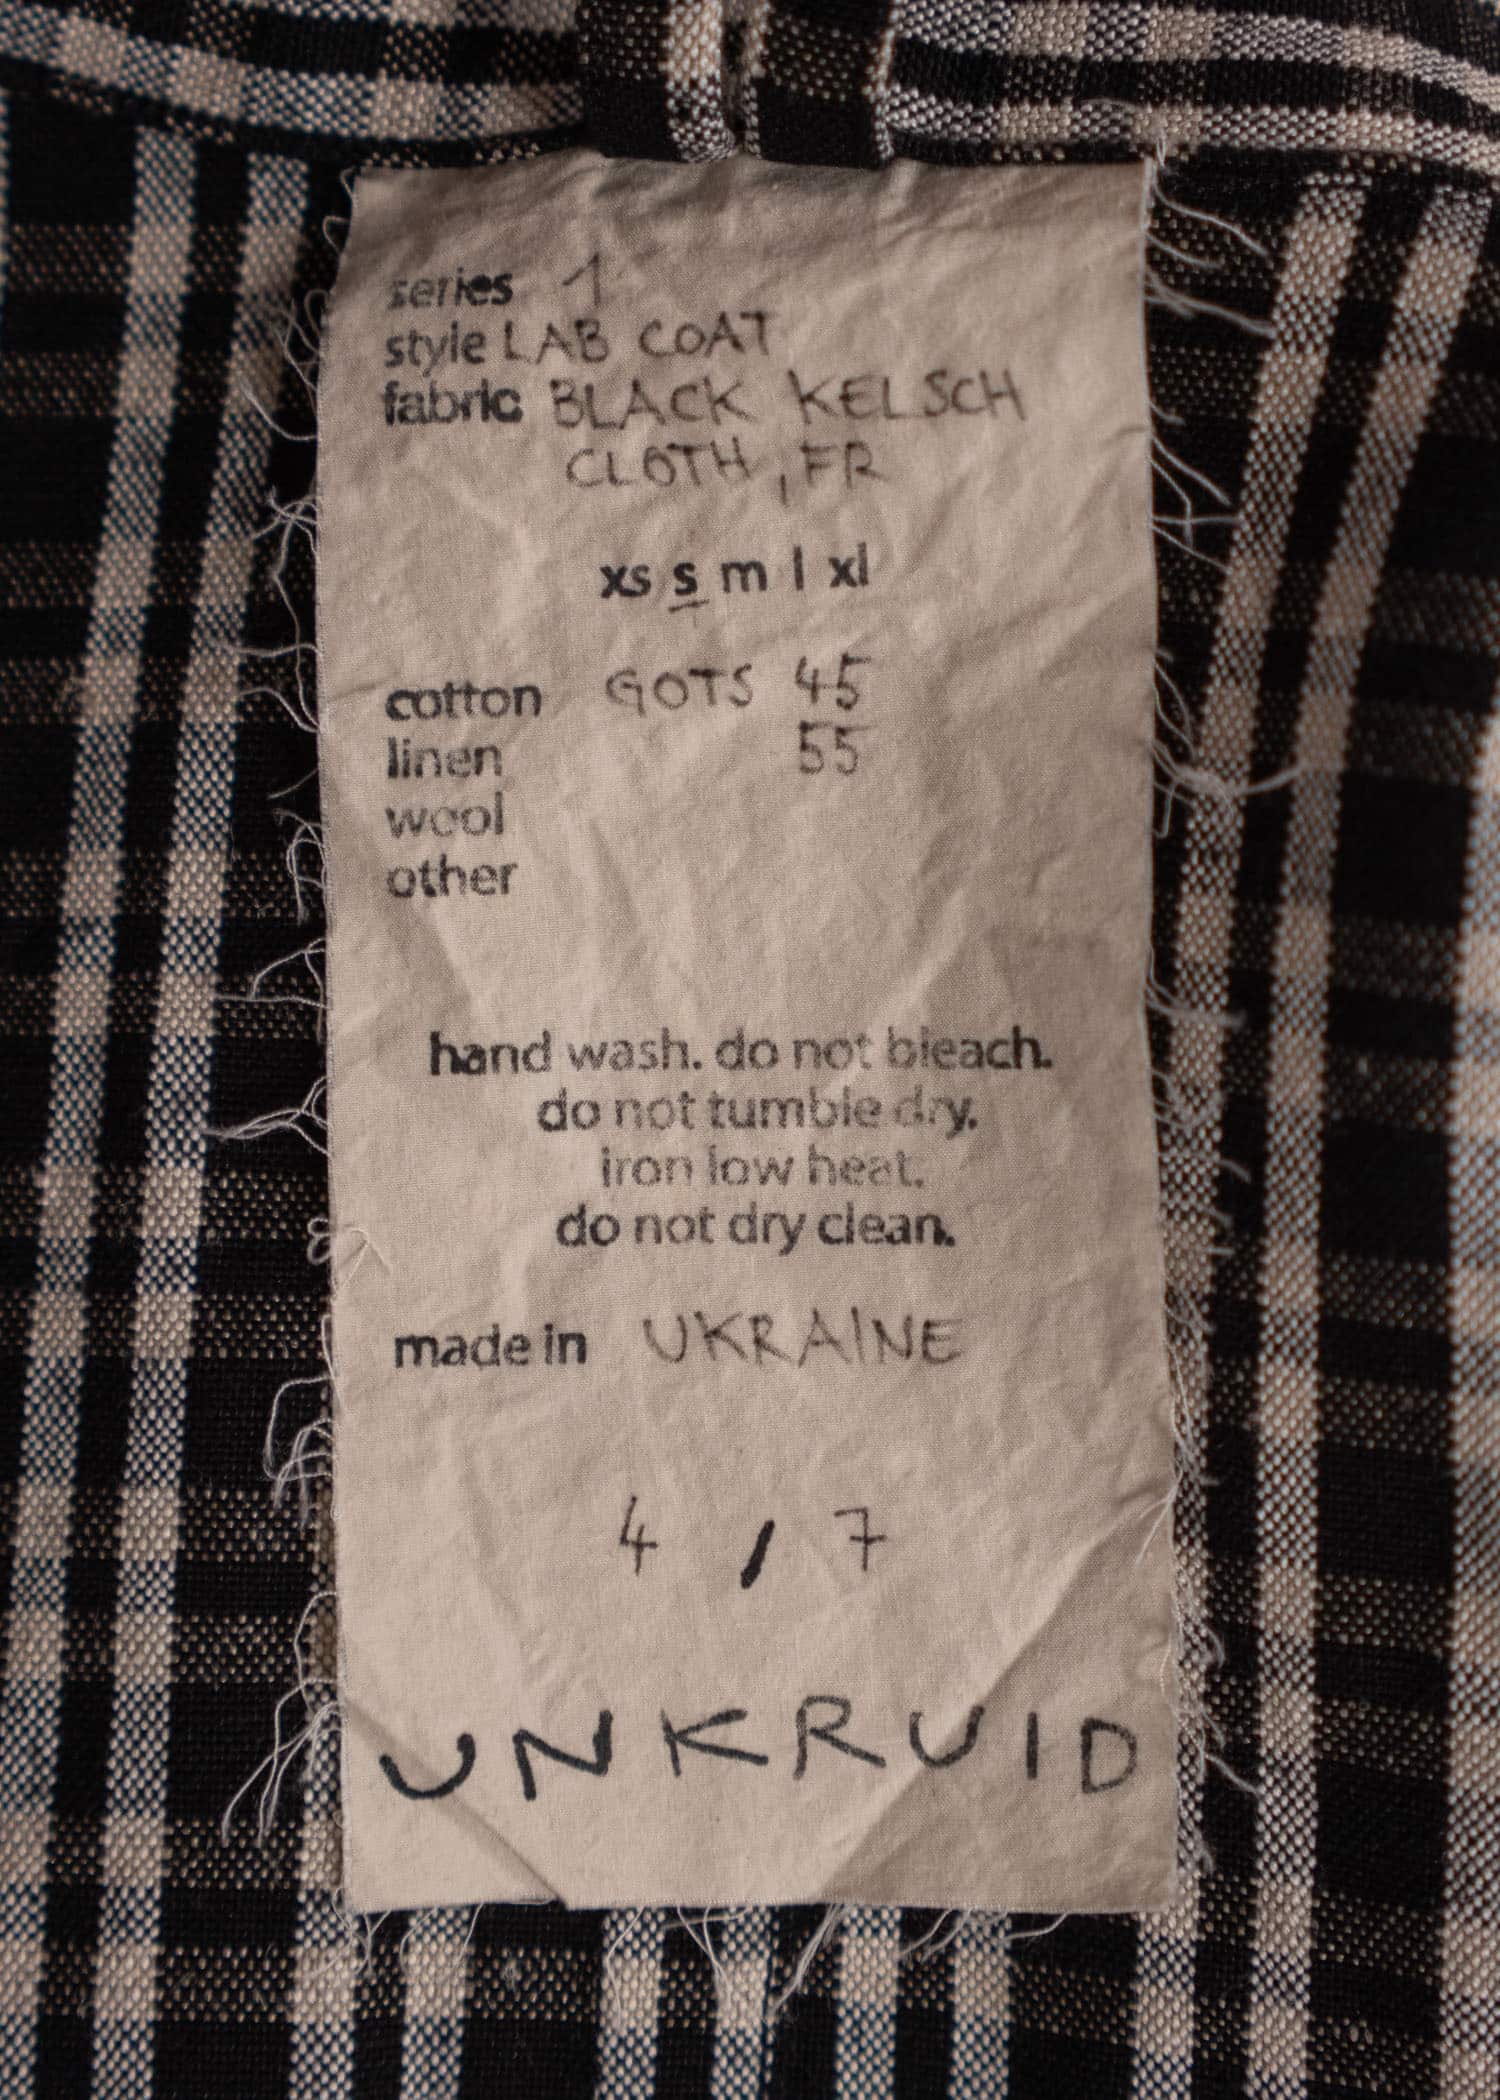 series 1
style LAB COAT
fabric BLACK KELSCH
CLOTH, FR
xs s m l xl
cotton GOTS 45
linen 55
wool
other
hand wash. do not bleach.
do not tumble dry.
iron low heat.
do not dry clean.
made in UKRAINE
4 / 7
UNKRUID